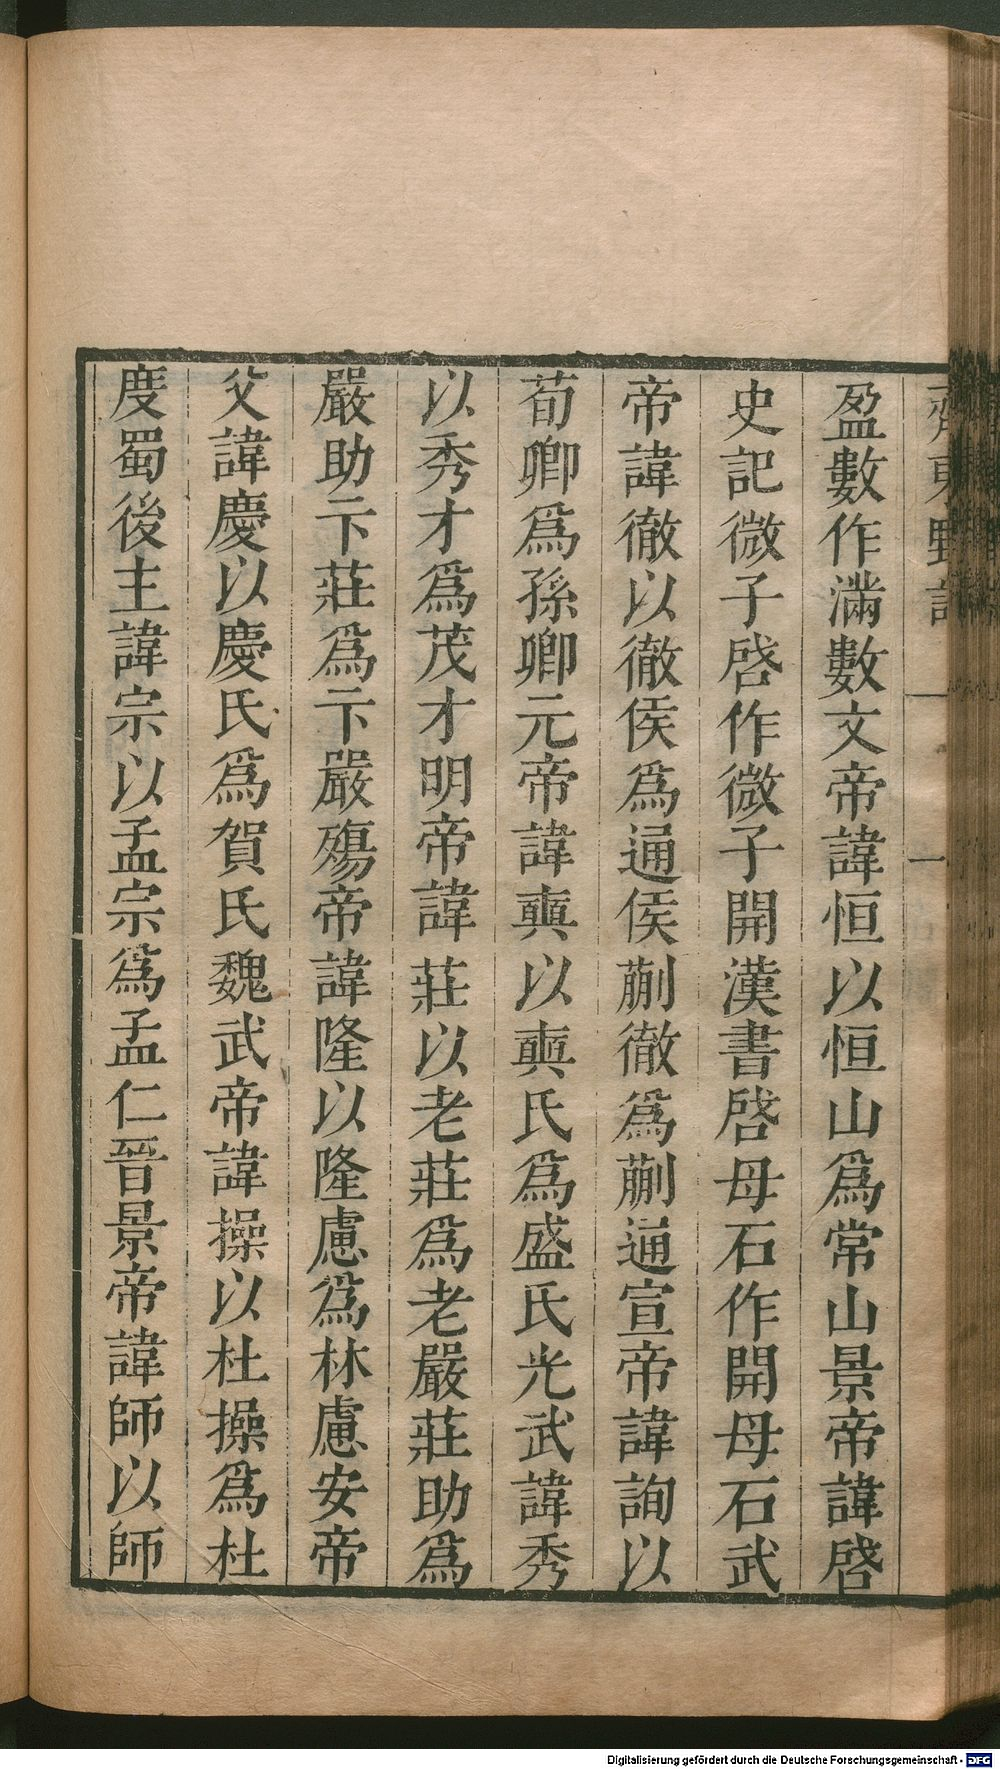 盈數作滿數文帝諱恒以恒山爲常山景帝諱啓
史記微子啓作微子開漢書啓母石作開母石武
帝諱徹以徹侯爲通侯蒯徹爲蒯通宣帝諱詢以
荀卿爲孫卿元帝諱奭以奭氏爲盛氏光武諱秀
以秀才爲茂才明帝諱莊以老莊爲老嚴莊助爲
嚴助卞莊爲卞嚴殤帝諱隆以隆慮爲林慮安帝
父諱慶以慶氏爲賀氏魏武帝諱操以杜操爲杜
度蜀後主諱宗以孟宗爲孟仁晉景帝諱師以師
齊東野語 一 一
Digitalisierung gefördert durch die Deutsche Forschungsgemeinschaft - DFG